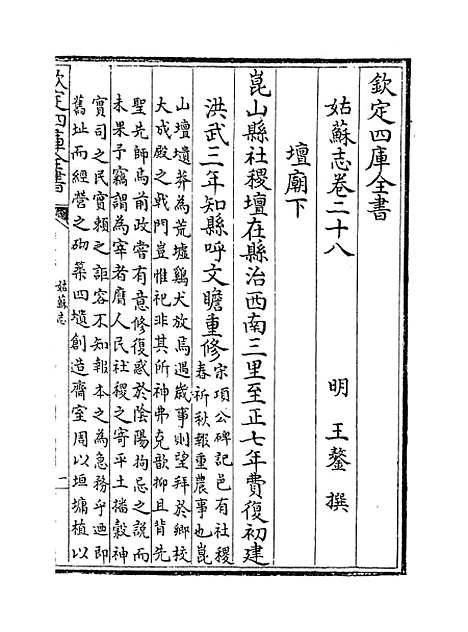 欽定四庫全書
姑蘇志卷二十八
明 王鏊 撰
壇廟下
崑山縣社稷壇在縣治西南三里至正七年費復初建
洪武三年知縣呼文瞻重修宋項公碑記邑有社稷
春祈秋報重農事也崑
山壇遺莽為荒墟鷄犬放焉遇歲事則望拜於鄉校
大成殿之戟門豈惟祀非其所神弗克歆抑且背先
聖先師焉前政嘗有意修復惑於陰陽拘忌之說而
未果予竊謂為宰者膺人民社稷之寄平土播穀神
實司之民實賴之詎容不知報本之為急務乎廼即
舊址而經營之砌築四壝創造齋室周以垣墉植以
欽定四庫全書
姑蘇志
一